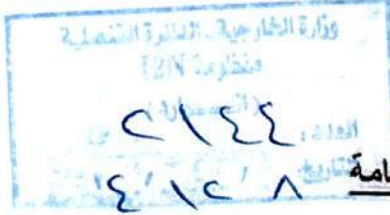 وزارة الخارجية - الدائرة القنصلية
منظومة
العدد : ٢١٤٤
التاريخ ٨ / ١٢ / ٤
امة